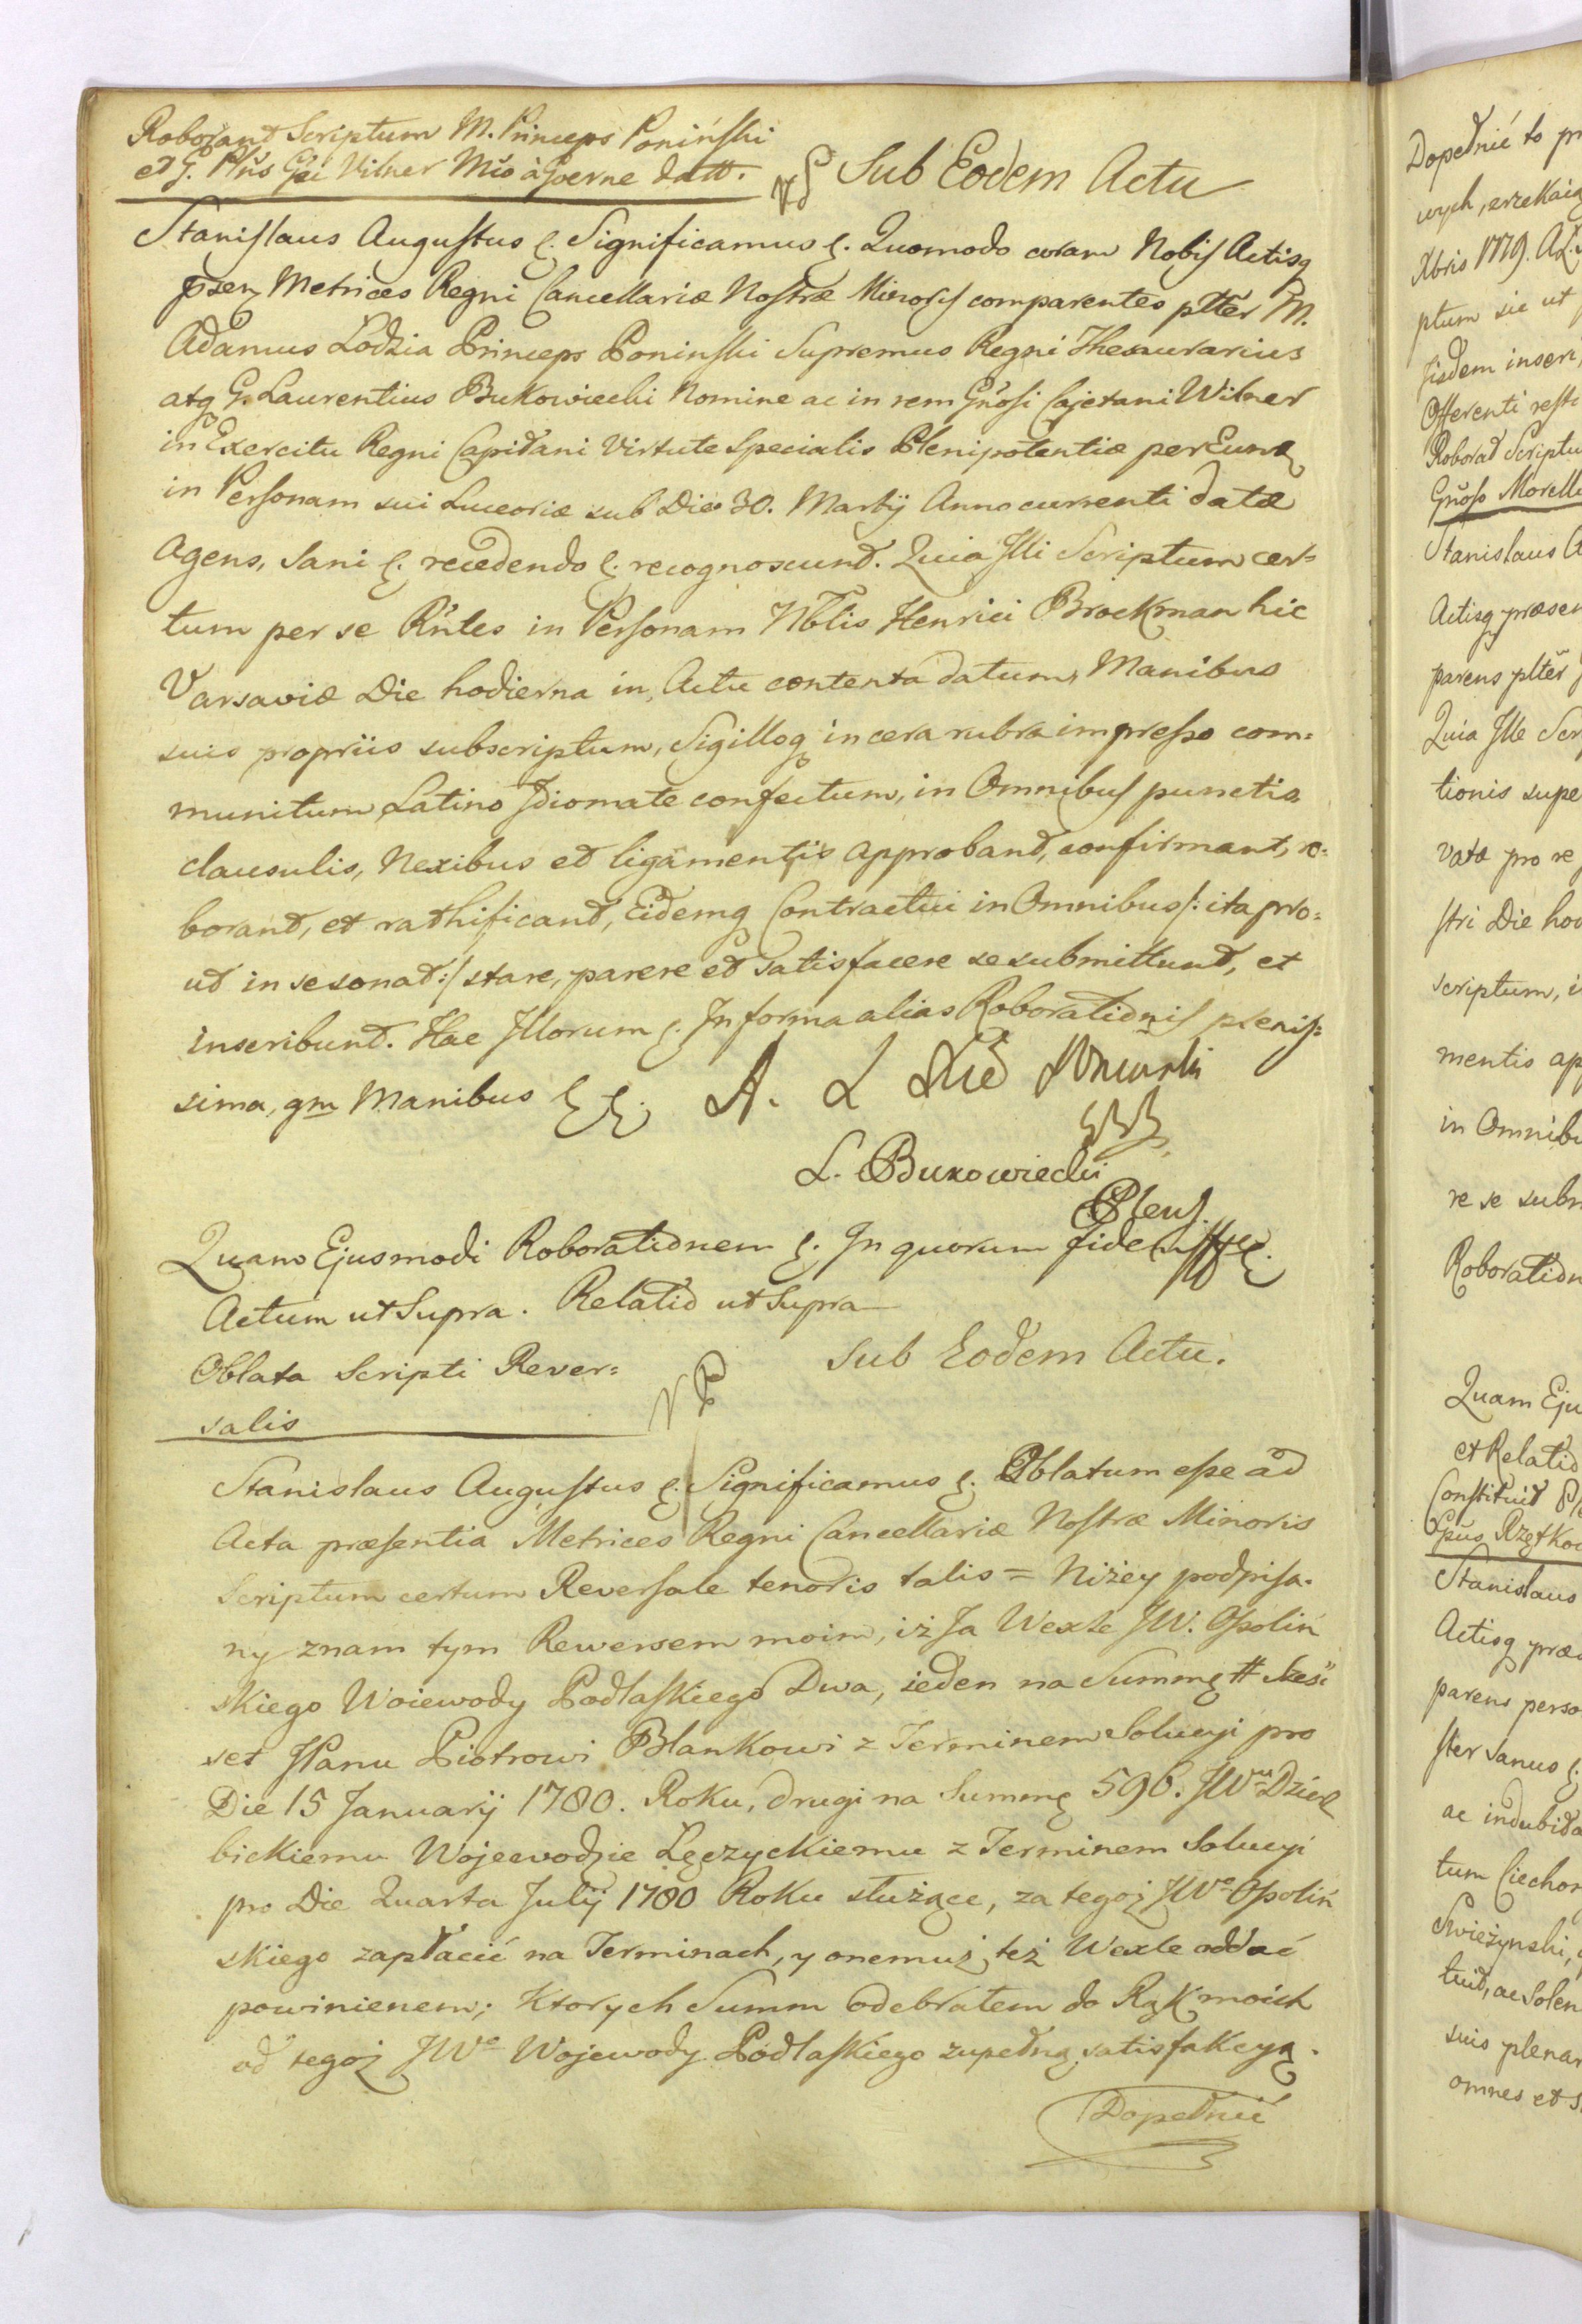 Roborant Scriptum M. Princeps Poniński
et G. Plńs Gsi Vilner Mĩo à Goerne datt.
Sub Eodem Actu
Stanislaus Augustus &. Significamus &. Quomodo coram Nobis Actisq
psen Metrices Regni Cancellariæ Nostræ Minoris comparentes pltter M.
Adamus Lodzia Princeps Poninski Supremus Regni Thesaurarius
atq G. Laurentius Bukowiecki Nomine ac in rem Gnosi Cajetani Wilner
in Exercitu Regni Capitani Virtute Specialis Plenipotentiæ per Eunq
in Personam sui Luceoriæ sub Die 30. Martij Anno currenti datæ
Agens, Sani &. recedendo &. recognoscunt. Quia Illi Scriptum cer=
tum per se Rńtes in Personam Nblis Henrici Brockman hic
Varsaviæ Die hodierna in Actu contenta datum, Manibus
suis propriis subscriptum, Sigilloq in cera rubra impresso com=
munitum Latino Idiomate confectum, in Omnibus punctis
clausulis, Nexibus et ligamentis approbant, confirmant, ro=
borant, et rathificant, Eidemq Contractui in Omnibus /: ita pro=
ut in se sonat :/ stare, parere et satisfacere se submittunt, et
inscribunt. Hac Illorum &. In forma alias Roborationis plenis=
sima, qm Manibus &&. A. L Xże Poninski
L. Bukowiecki
Plens.
Quam Ejusmodi Roborationem &. In quorum fidem &.
Actum ut Supra. Relatio ut Supra
Oblata Scripti Rever=
salis
Sub Eodem Actu.
Stanislaus Augustus &. Significamus &. Oblatum esse ad
Acta præsentia Metrices Regni Cancellariæ Nostræ Minoris
Scriptum certum Reversale tenoris talis = Niżey podpisa=
ny znam tym Rewersem moim, iż Ja Wexle JW. Ossoliń
skiego Woiewody Podlaskiego Dwa, ieden na Summę # Sześć
set JPanu Piotrowi Blankowi z Terminem Solucyi pro
Die 15 Januarij 1780. Roku, drugi na Summę 596. JWu Dzier
bickiemu Wojewodzie Łęczyckiemu z Terminem Solucyi
pro Die Quarta Julij 1780 Roku służące, za tegoż JWo Ossoliń
skiego zapłacić na Terminach, y onemuż też Wexle oddać
powinienem; Ktorych Summ odebrałem do Rąk moich
od tegoż JWo Wojewody Podlaskiego zupełną satisfakcyą.
Dopełnić
Dopełnić to
wych, zrzekaią
Xbris 1779.
ptum sic ut
fisdem inseri
Offerenti
Roborat Scriptu
Gnoso Morell
Stanislaus
Actisq præsen
parens plter
Quia Ille Scr
tionis supe
vatæ pro re
stri Die ho
scriptum, i
mentis ap
in Omnib
re se subm
Roboration
Quam Eju
et Relatio
Constituit
Stanislaus
Actisq præ
parens perso
ster Sanus &
ac indubita
tum Ciechon
Swieżynski,
tuit, ac Solen
suis plenar
omnes et s